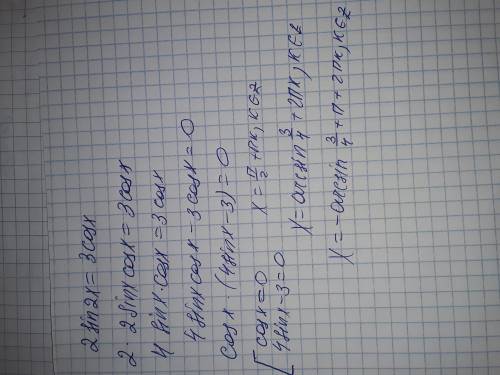 2 sin2x = 3 cosx
2 · 2 sinx cosx = 3 cosx
4 sinx · cosx = 3 cosx
4 sinx cosx - 3 cosx = 0
cosx · (4 sinx - 3) = 0
[ cosx = 0 x = π/2 + πk, k ∈ Z
4 sinx - 3 = 0 x = arcsin 3/4 + 2πk, k ∈ Z
x = -arcsin 3/4 + π + 2πk, k ∈ Z